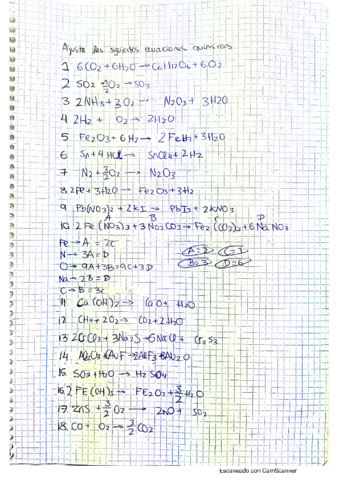 Ajusta las siguientes ecuaciones químicas
1 6CO2 + 6H2O → C6H12O6 + 6O2
2 SO2 + 1/2 O2 → SO3
3 2NH3 + 3O2 → N2O3 + 3H2O
4 2H2 + O2 → 2H2O
5 Fe2O3 + 6H2 → 2FeH3 + 3H2O
6 Sn + 4HCl → SnCl4 + 2H2
7 N2 + 3/2 O2 → N2O3
8 2Fe + 3H2O → Fe2O3 + 3H2
9 Pb(NO3)2 + 2KI → PbI2 + 2KNO3
A B C D
10 2Fe(NO3)3 + 3Na2CO3 → Fe2(CO3)3 + 6NaNO3
Fe → A = 2C
N → 3A = D
O → 9A + 3B = 9C + 3D
Na → 2B = D
C → B = 3C
A=2 C=1
B=3 D=6
11 Ca(OH)2 → CaO + H2O
12 CH4 + 2O2 → CO2 + 2H2O
13 2CrCl3 + 3Na2S → 6NaCl + Cr2S3
14
15 SO3 + H2O → H2SO4
16 2FE(OH)3 → FE2O3 + 3/2 H2O
17 ZnS + 3/2 O2 → ZnO + SO2
18 CO + O2 → 3/2 CO2
Escaneado con CamScanner